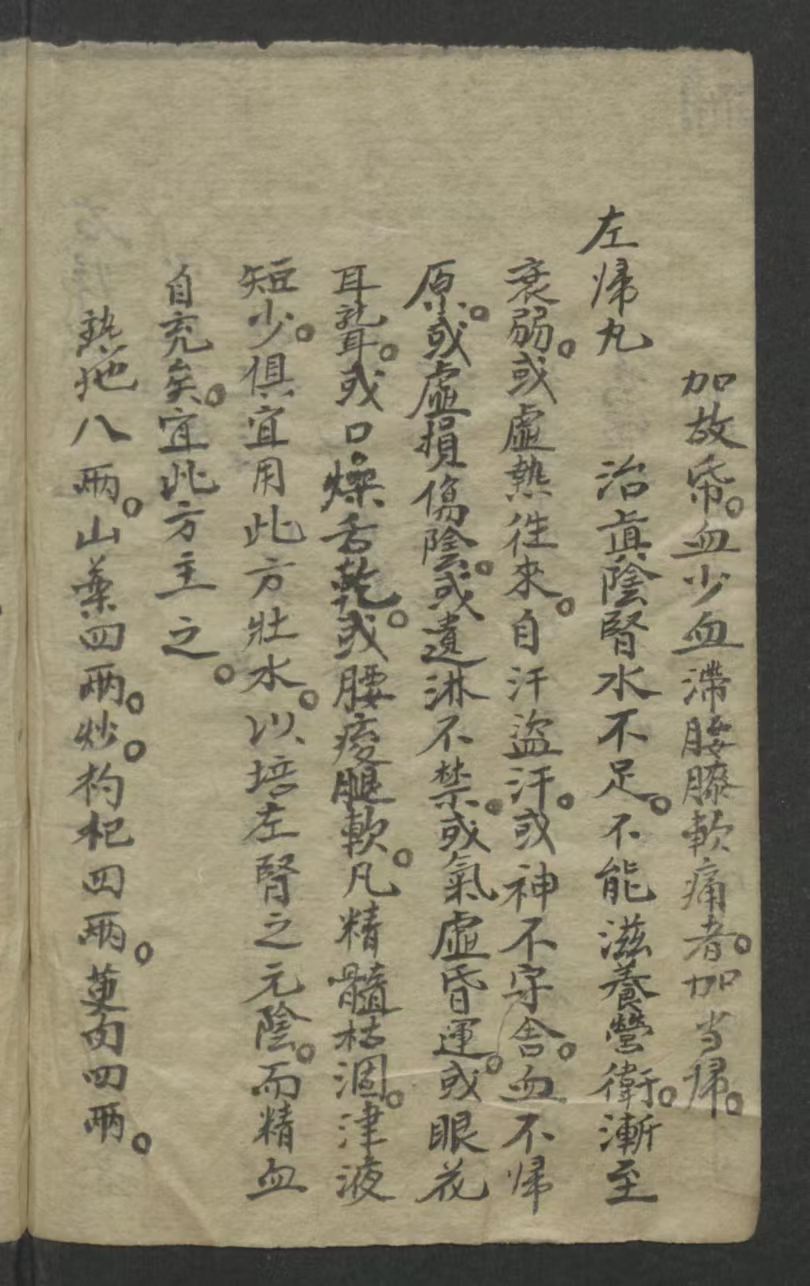 加故帋。血少血滯腰膝軟痛者。加当帰。
左帰丸　治真陰腎水不足。不能滋養營衛。漸至
衰弱。或虛熱往來。自汗盜汗。或神不守舍。血不帰
原。或虛損傷陰。或遺淋不禁。或氣虛昏運。或眼花
耳聾。或口燥舌乾。或腰痠腿軟。凡精髓枯涸。津液
短少。俱宜用此方壯水。以培左腎之元陰。而精血
自充矣。宜此方主之。
熟地八兩。山藥四兩。炒。枸杞四兩。萸肉四兩。